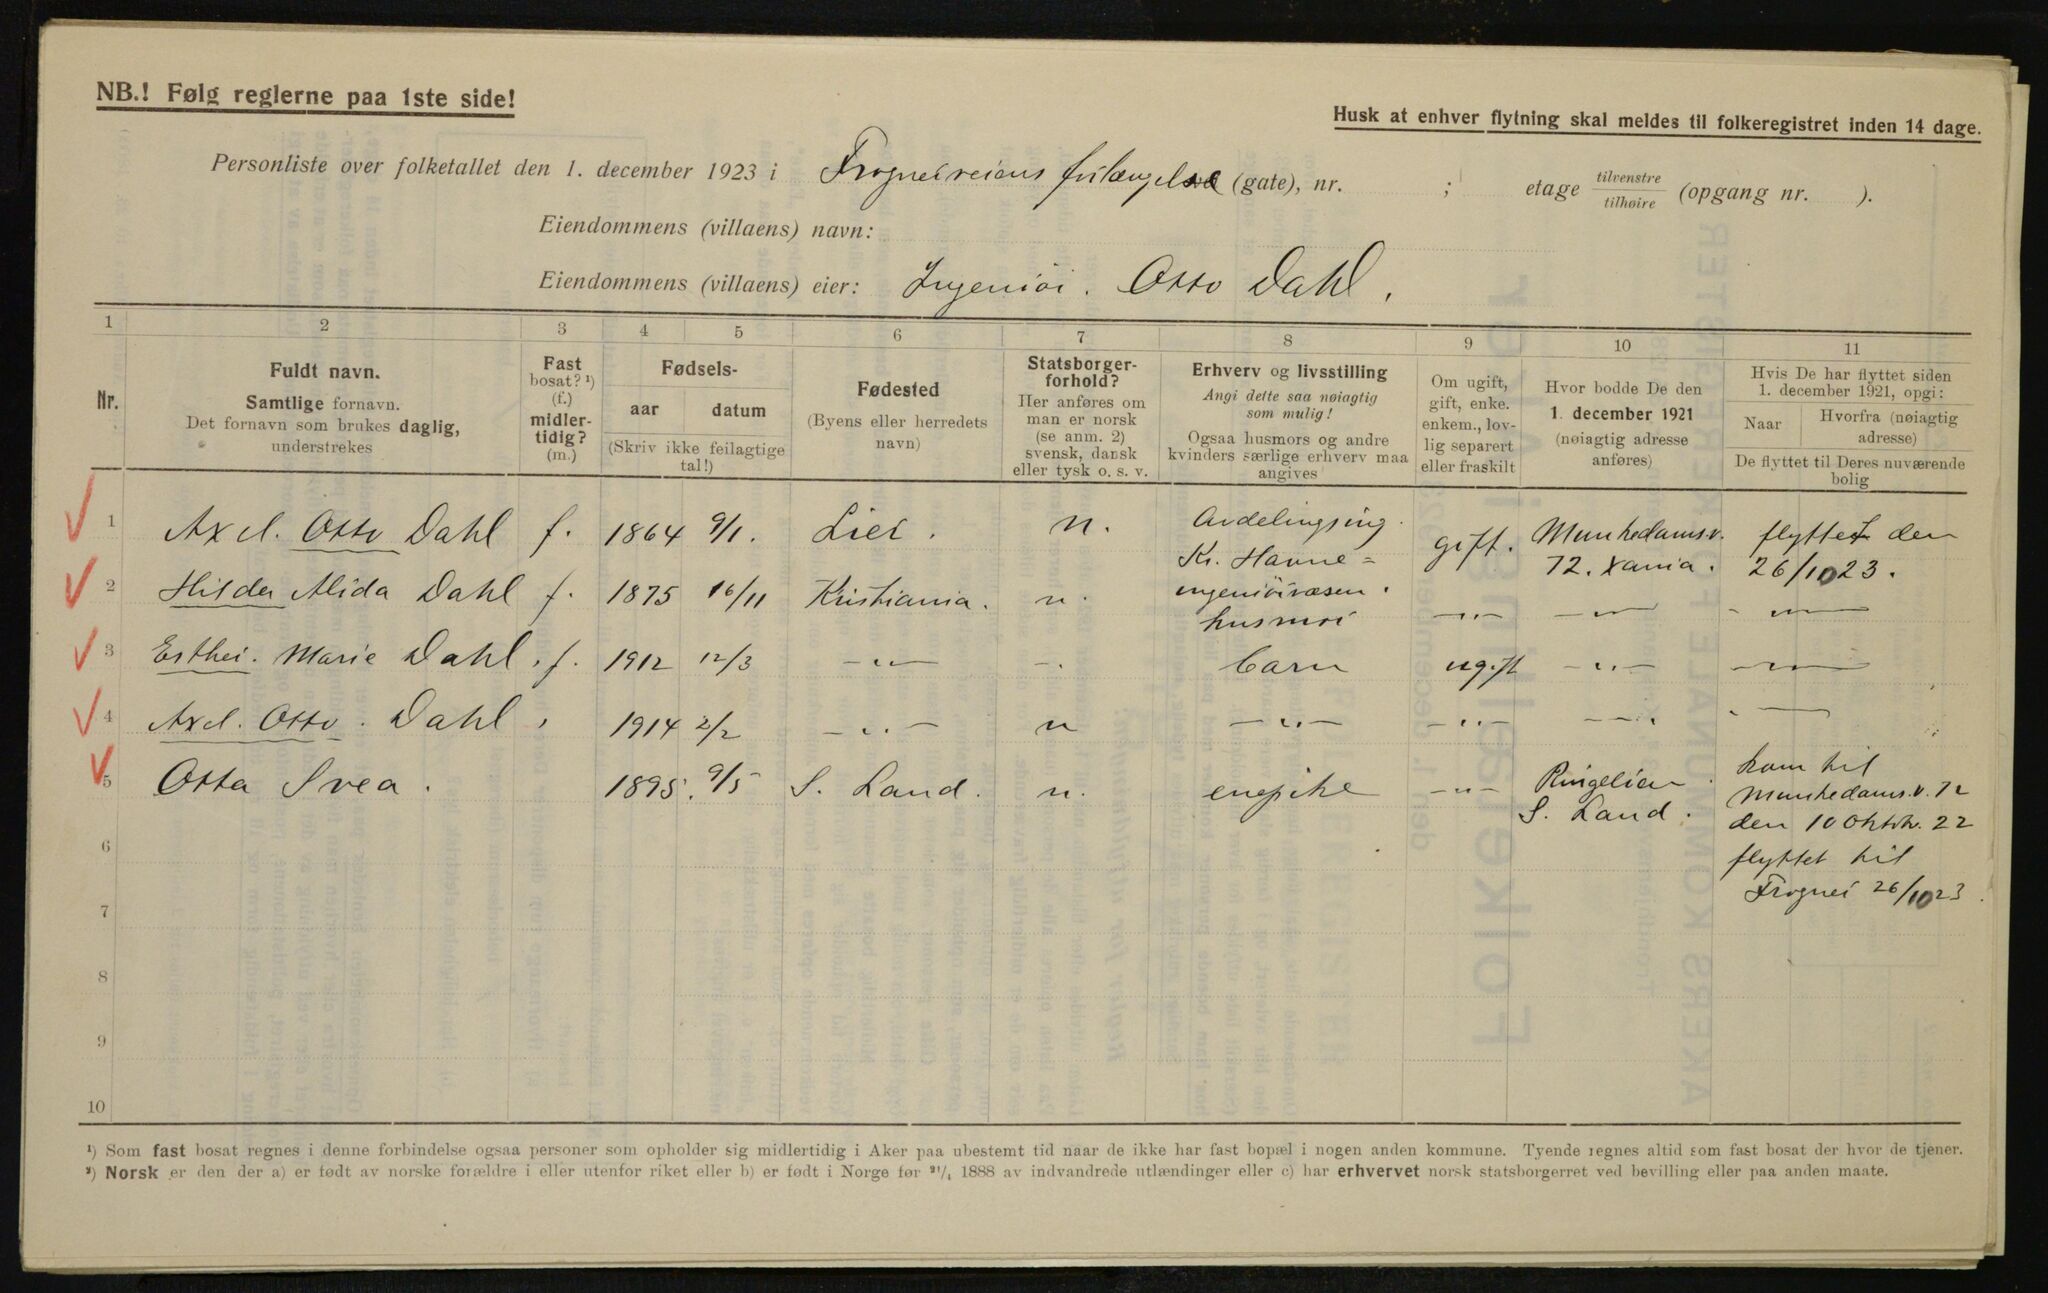 NB.! Følg reglerne paa 1ste side!
Husk at enhver flytning skal meldes til folkeregistret inden 14 dage.
Personliste over folketallet den 1. december 1923 i Frogneiveiens forlængelse (gate), nr. ; etage tilvenstre / tilhøire (opgang nr. ).
Eiendommens (villaens) navn:
Eiendommens (villaens) eier: Ingeniör. Otto Dahl.
1 2 3 4 5 6 7 8 9 10 11
Nr.
Fuldt navn.
Samtlige fornavn.
Det fornavn som brukes daglig,
understrekes
Fast
bosat? ¹)
(f.)
midler-
tidig?
(m.)
Fødsels-
aar datum
(Skriv ikke feilagtige
tal!)
Fødested
(Byens eller herredets
navn)
Statsborger-
forhold?
Her anføres om
man er norsk
(se anm. 2)
svensk, dansk
eller tysk o. s. v.
Erhverv og livsstilling
Angi dette saa nøiagtig
som mulig!
Ogsaa husmors og andre
kvinders særlige erhverv maa
angives
Om ugift,
gift, enke.
enkem., lov-
lig separert
eller fraskilt
Hvor bodde De den
1. december 1921
(nøiagtig adresse
anføres)
Hvis De har flyttet siden
1. december 1921, opgi:
Naar Hvorfra (nøiagtig
adresse)
De flyttet til Deres nuværende
bolig
1 Axel. Otto Dahl f. 1864 9/1. Lier. n. Avdelingsing. Kr. Havne= ingeniörvæsen. gift. Munkedamsv. 72. Xania. flyttet den 26/10 23.
2 Hilda Alida Dahl f. 1875 16/11 Kristiania. n. husmor -"- -"- -"-
3 Esther. Marie Dahl. f. 1912 12/3 -"- -. barn ugift -"- -"-
4 Axel. Otto. Dahl. 1914 2/2 -"- n -"- -"- -"- -"-
5 Otta Svea. 1895. 9/5 S. Land. n. enepike -"- Ringelien S. Land. kom til
Munkedams.v. 72
den 10 Oktbr. 22
6 flyttet til
Frogner 26/10 23.
7
8
9
10
¹) Som fast bosat regnes i denne forbindelse ogsaa personer som opholder sig midlertidig i Aker paa ubestemt tid naar de ikke har fast bopæl i nogen anden kommune. Tyende regnes altid som fast bosat der hvor de tjener.
²) Norsk er den der a) er født av norske forældre i eller utenfor riket eller b) er født i Norge før ²¹/₄ 1888 av indvandrede utlændinger eller c) har erhvervet norsk statsborgerret ved bevilling eller paa anden maate.